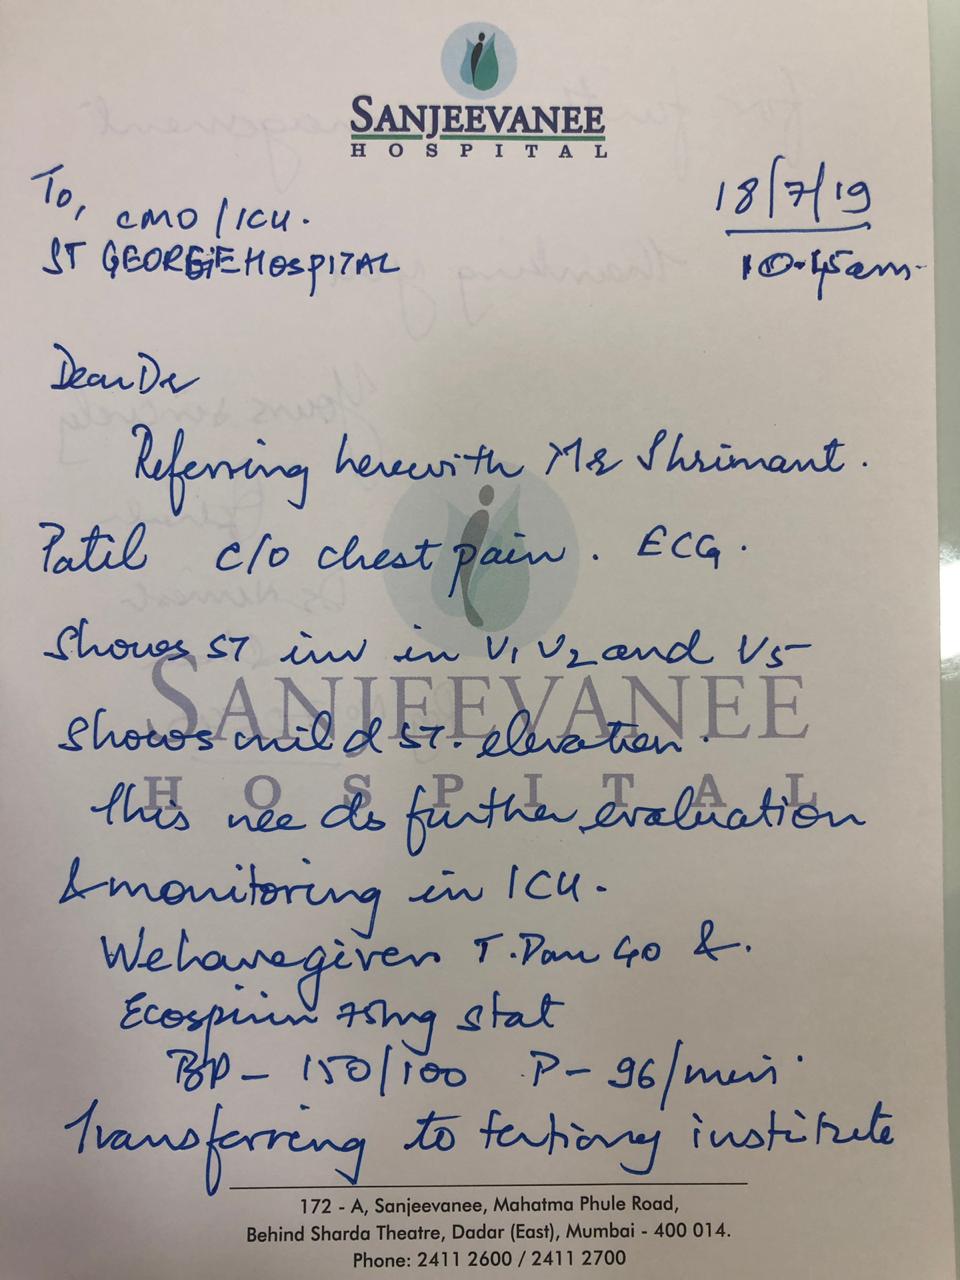 SANJEEVANEE
HOSPITAL
To,
18/7/19
CMO / ICU.
ST GEORGE HOSPITAL
10.45am
Dear Dr
Referring herewith Mr Shrimant.
Patil c/o chest pain. ECG.
Shows ST inv in V1 V2 and V5
SANJEEVANEE
Shows mild ST. elevation.
HOSPITAL
This needs further evaluation
& monitoring in ICU.
We have given T. Pan 40 &.
Ecospirin 75mg stat
BP - 150/100 P - 96/min
Transferring to tertiary institute
172 - A, Sanjeevanee, Mahatma Phule Road,
Behind Sharda Theatre, Dadar (East), Mumbai - 400 014.
Phone: 2411 2600 / 2411 2700